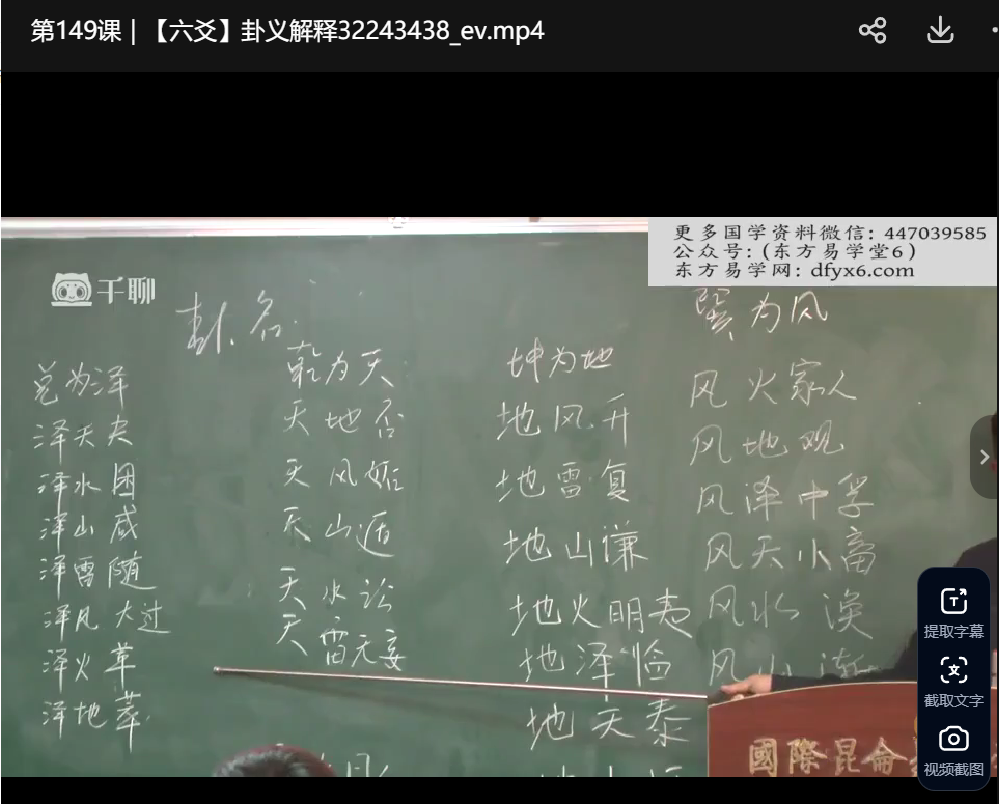 第149课 | 【六爻】卦义解释32243438_ev.mp4
更多国学资料微信: 447039585
公众号: (东方易学堂6)
东方易学网: dfyx6.com
千聊
卦名
兑为泽
泽天夬
泽水困
泽山咸
泽雷随
泽风大过
泽火革
泽地萃
乾为天
天地否
天风姤
天山遁
天水讼
天雷无妄
坤为地
地风升
地雷复
地山谦
地火明夷
地泽临
地天泰
巽为风
风火家人
风地观
风泽中孚
风天小畜
风水涣
风山渐
國際昆侖
提取字幕
截取文字
视频截图